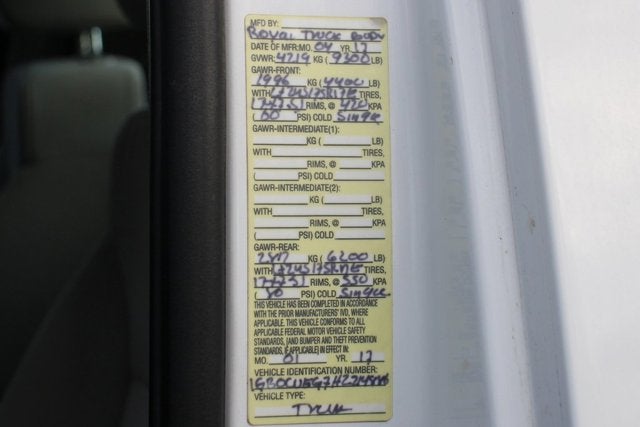 MFD BY:
Royal Truck Body
DATE OF MFR: MO. 04 YR. 17
GVWR: 4219 KG ( 9300 LB)
GAWR-FRONT:
1996 KG ( 4400 LB)
WITH TIRES,
RIMS, @ 420 KPA
( 60 PSI) COLD Single
GAWR-INTERMEDIATE(1):
KG ( LB)
WITH TIRES,
RIMS, @ KPA
( PSI) COLD
GAWR-INTERMEDIATE(2):
KG ( LB)
WITH TIRES,
RIMS, @ KPA
( PSI) COLD
GAWR-REAR:
KG ( 6200 LB)
WITH TIRES,
RIMS, @ 550 KPA
( 80 PSI) COLD Single
THIS VEHICLE HAS BEEN COMPLETED IN ACCORDANCE
WITH THE PRIOR MANUFACTURERS' IVD, WHERE
APPLICABLE. THIS VEHICLE CONFORMS TO ALL
APPLICABLE FEDERAL MOTOR VEHICLE SAFETY
STANDARDS, [AND BUMPER AND THEFT PREVENTION
STANDARDS, IF APPLICABLE] IN EFFECT IN:
MO. 01 YR. 17
VEHICLE IDENTIFICATION NUMBER:
VEHICLE TYPE:
Truck